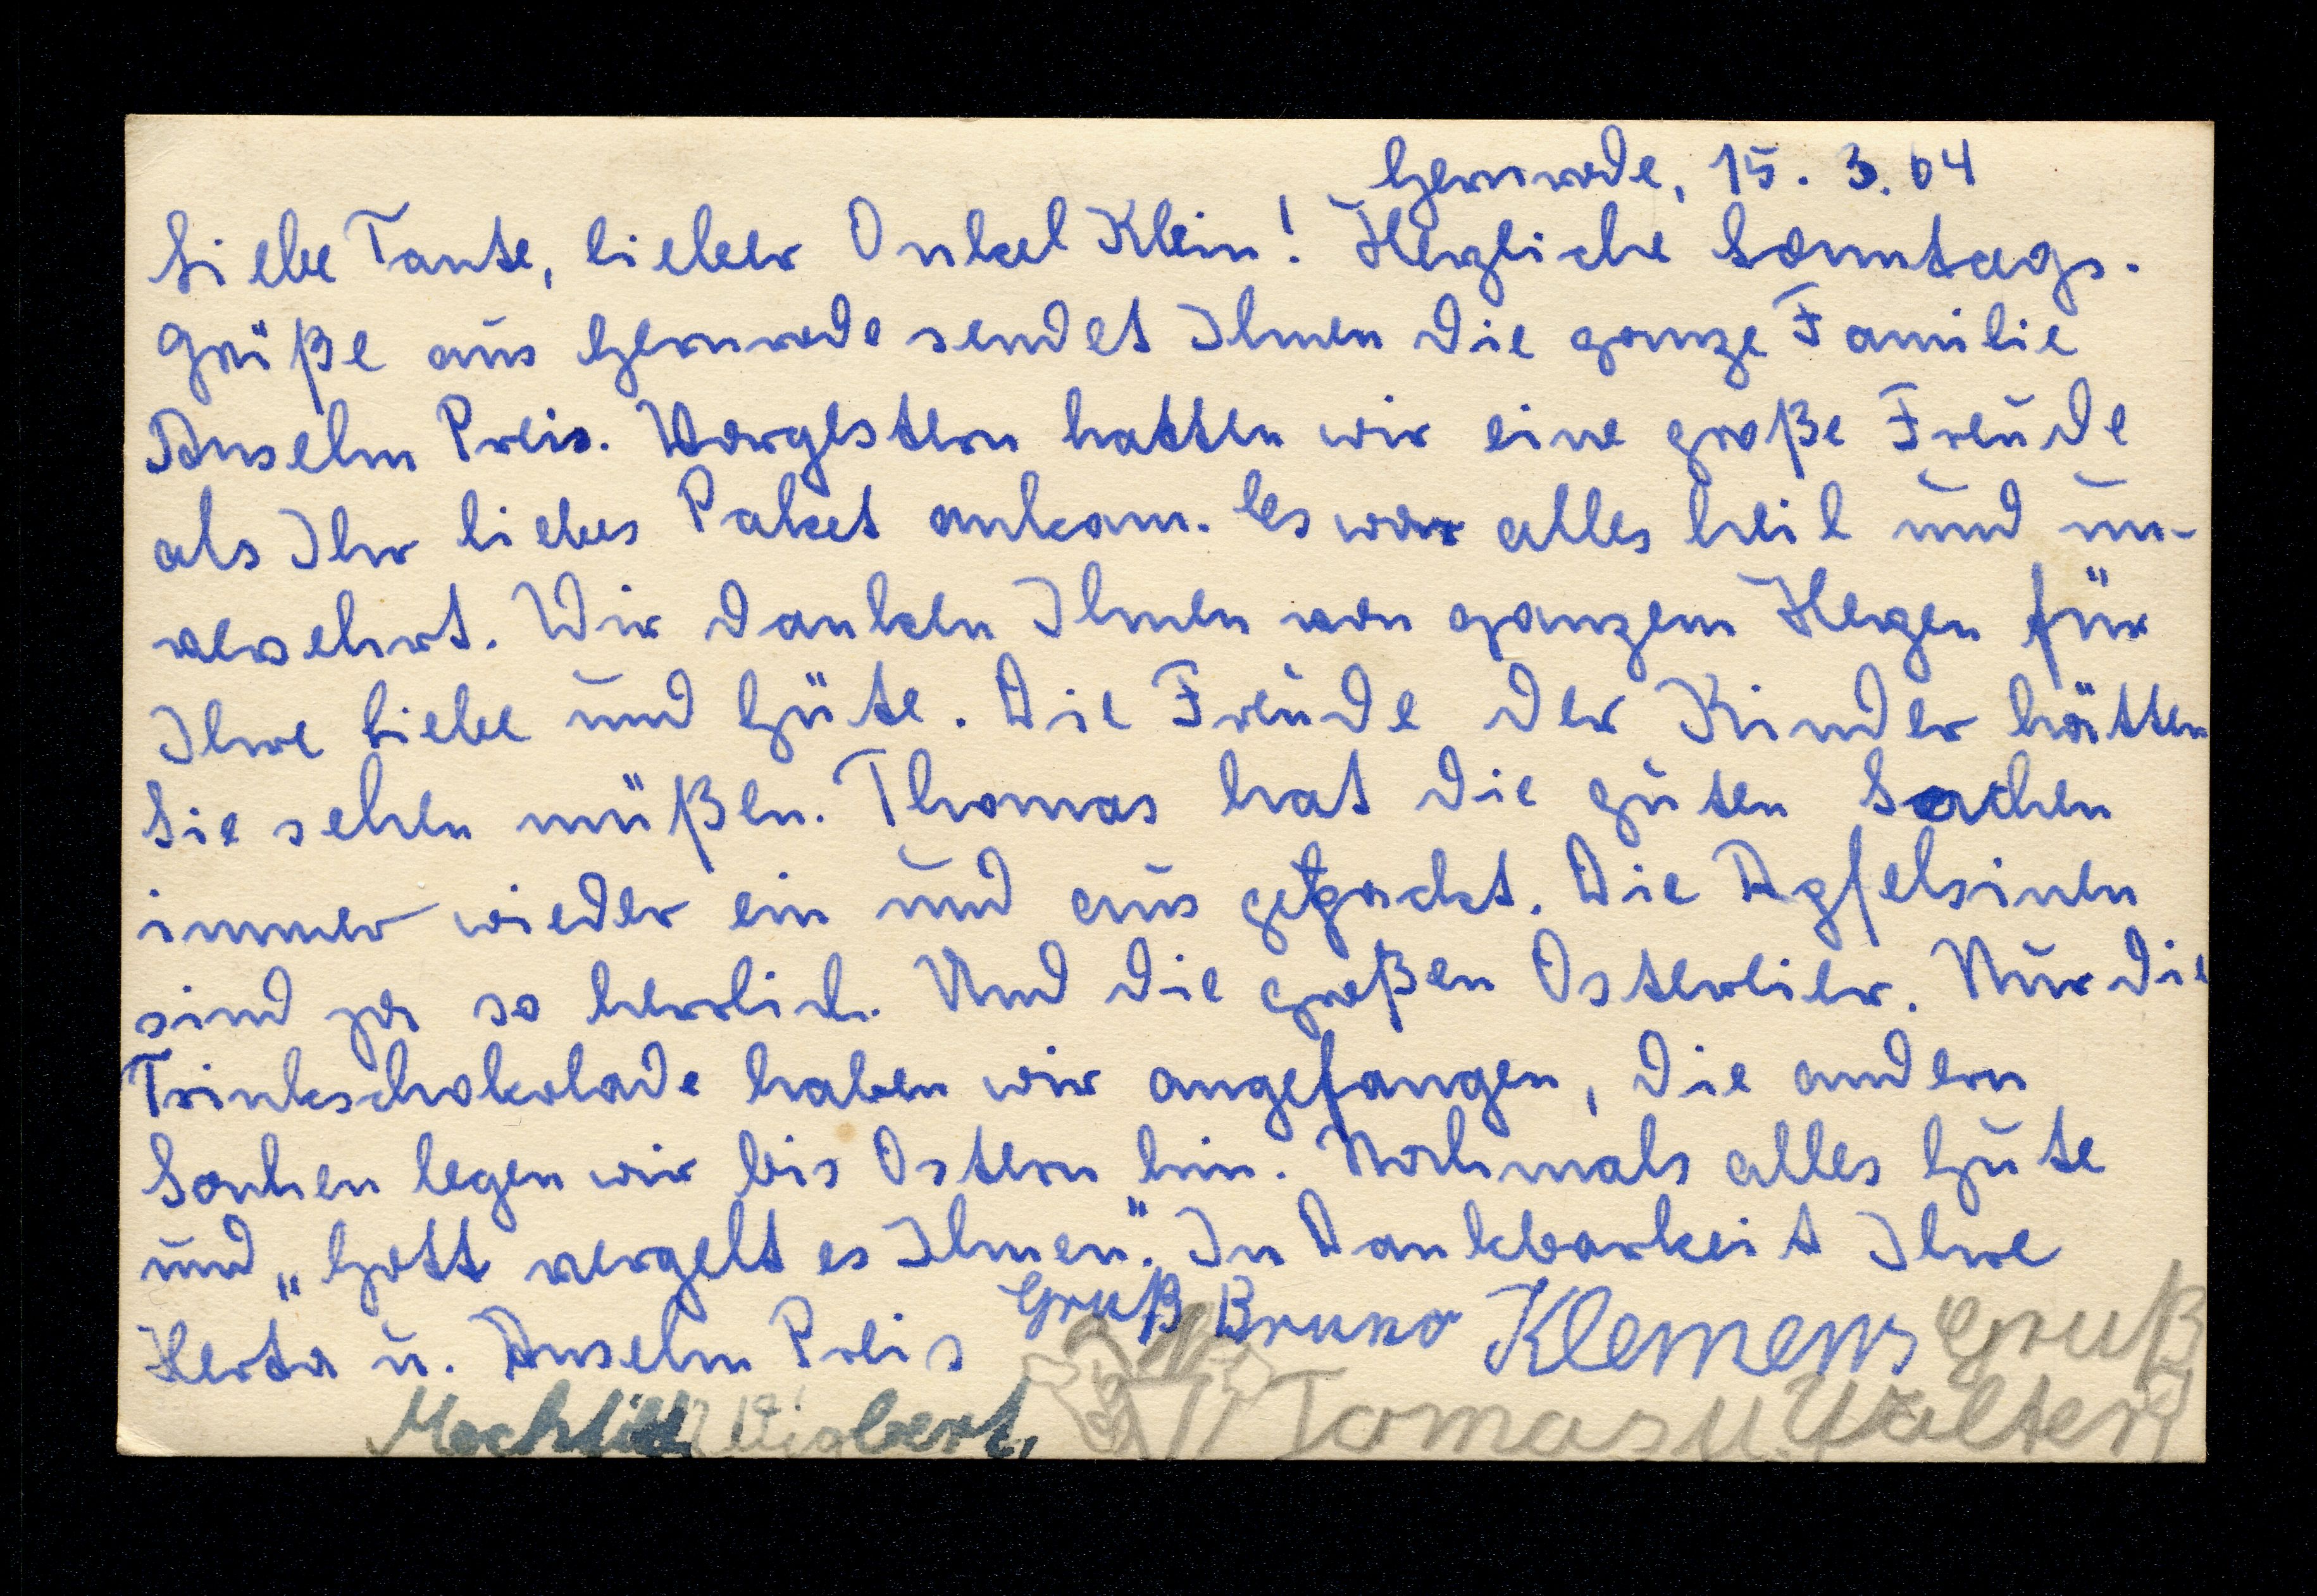 Gernrode, 15. 3. 64
Liebe Tante, lieber Onkel Klein! Herzliche Sonntags-
grüße aus Gernrode sendet Ihnen die ganze Familie
Anselm Preis. Vorgestern hatten wir eine große Freude
als Ihr liebes Paket ankam. Es war alles heil und un-
versehrt. Wir danken Ihnen von ganzem Herzen für
Ihre Liebe und Güte. Die Freude der Kinder hätten
Sie sehen müßen. Thomas hat die guten Sachen
immer wieder ein und aus gepackt. Die Apfelsinen
sind ja so herrlich. Und die großen Ostereier. Nur die
Trinkschokolade haben wir angefangen, die andern
Sachen legen wir bis Ostern hin. Nochmals alles Gute
und „Gott vergelt es Ihnen". In Dankbarkeit Ihre
Herta u. Anselm Preis Gruß Bruno Klemens Gruß
Wigbert, Tomas u. Walter